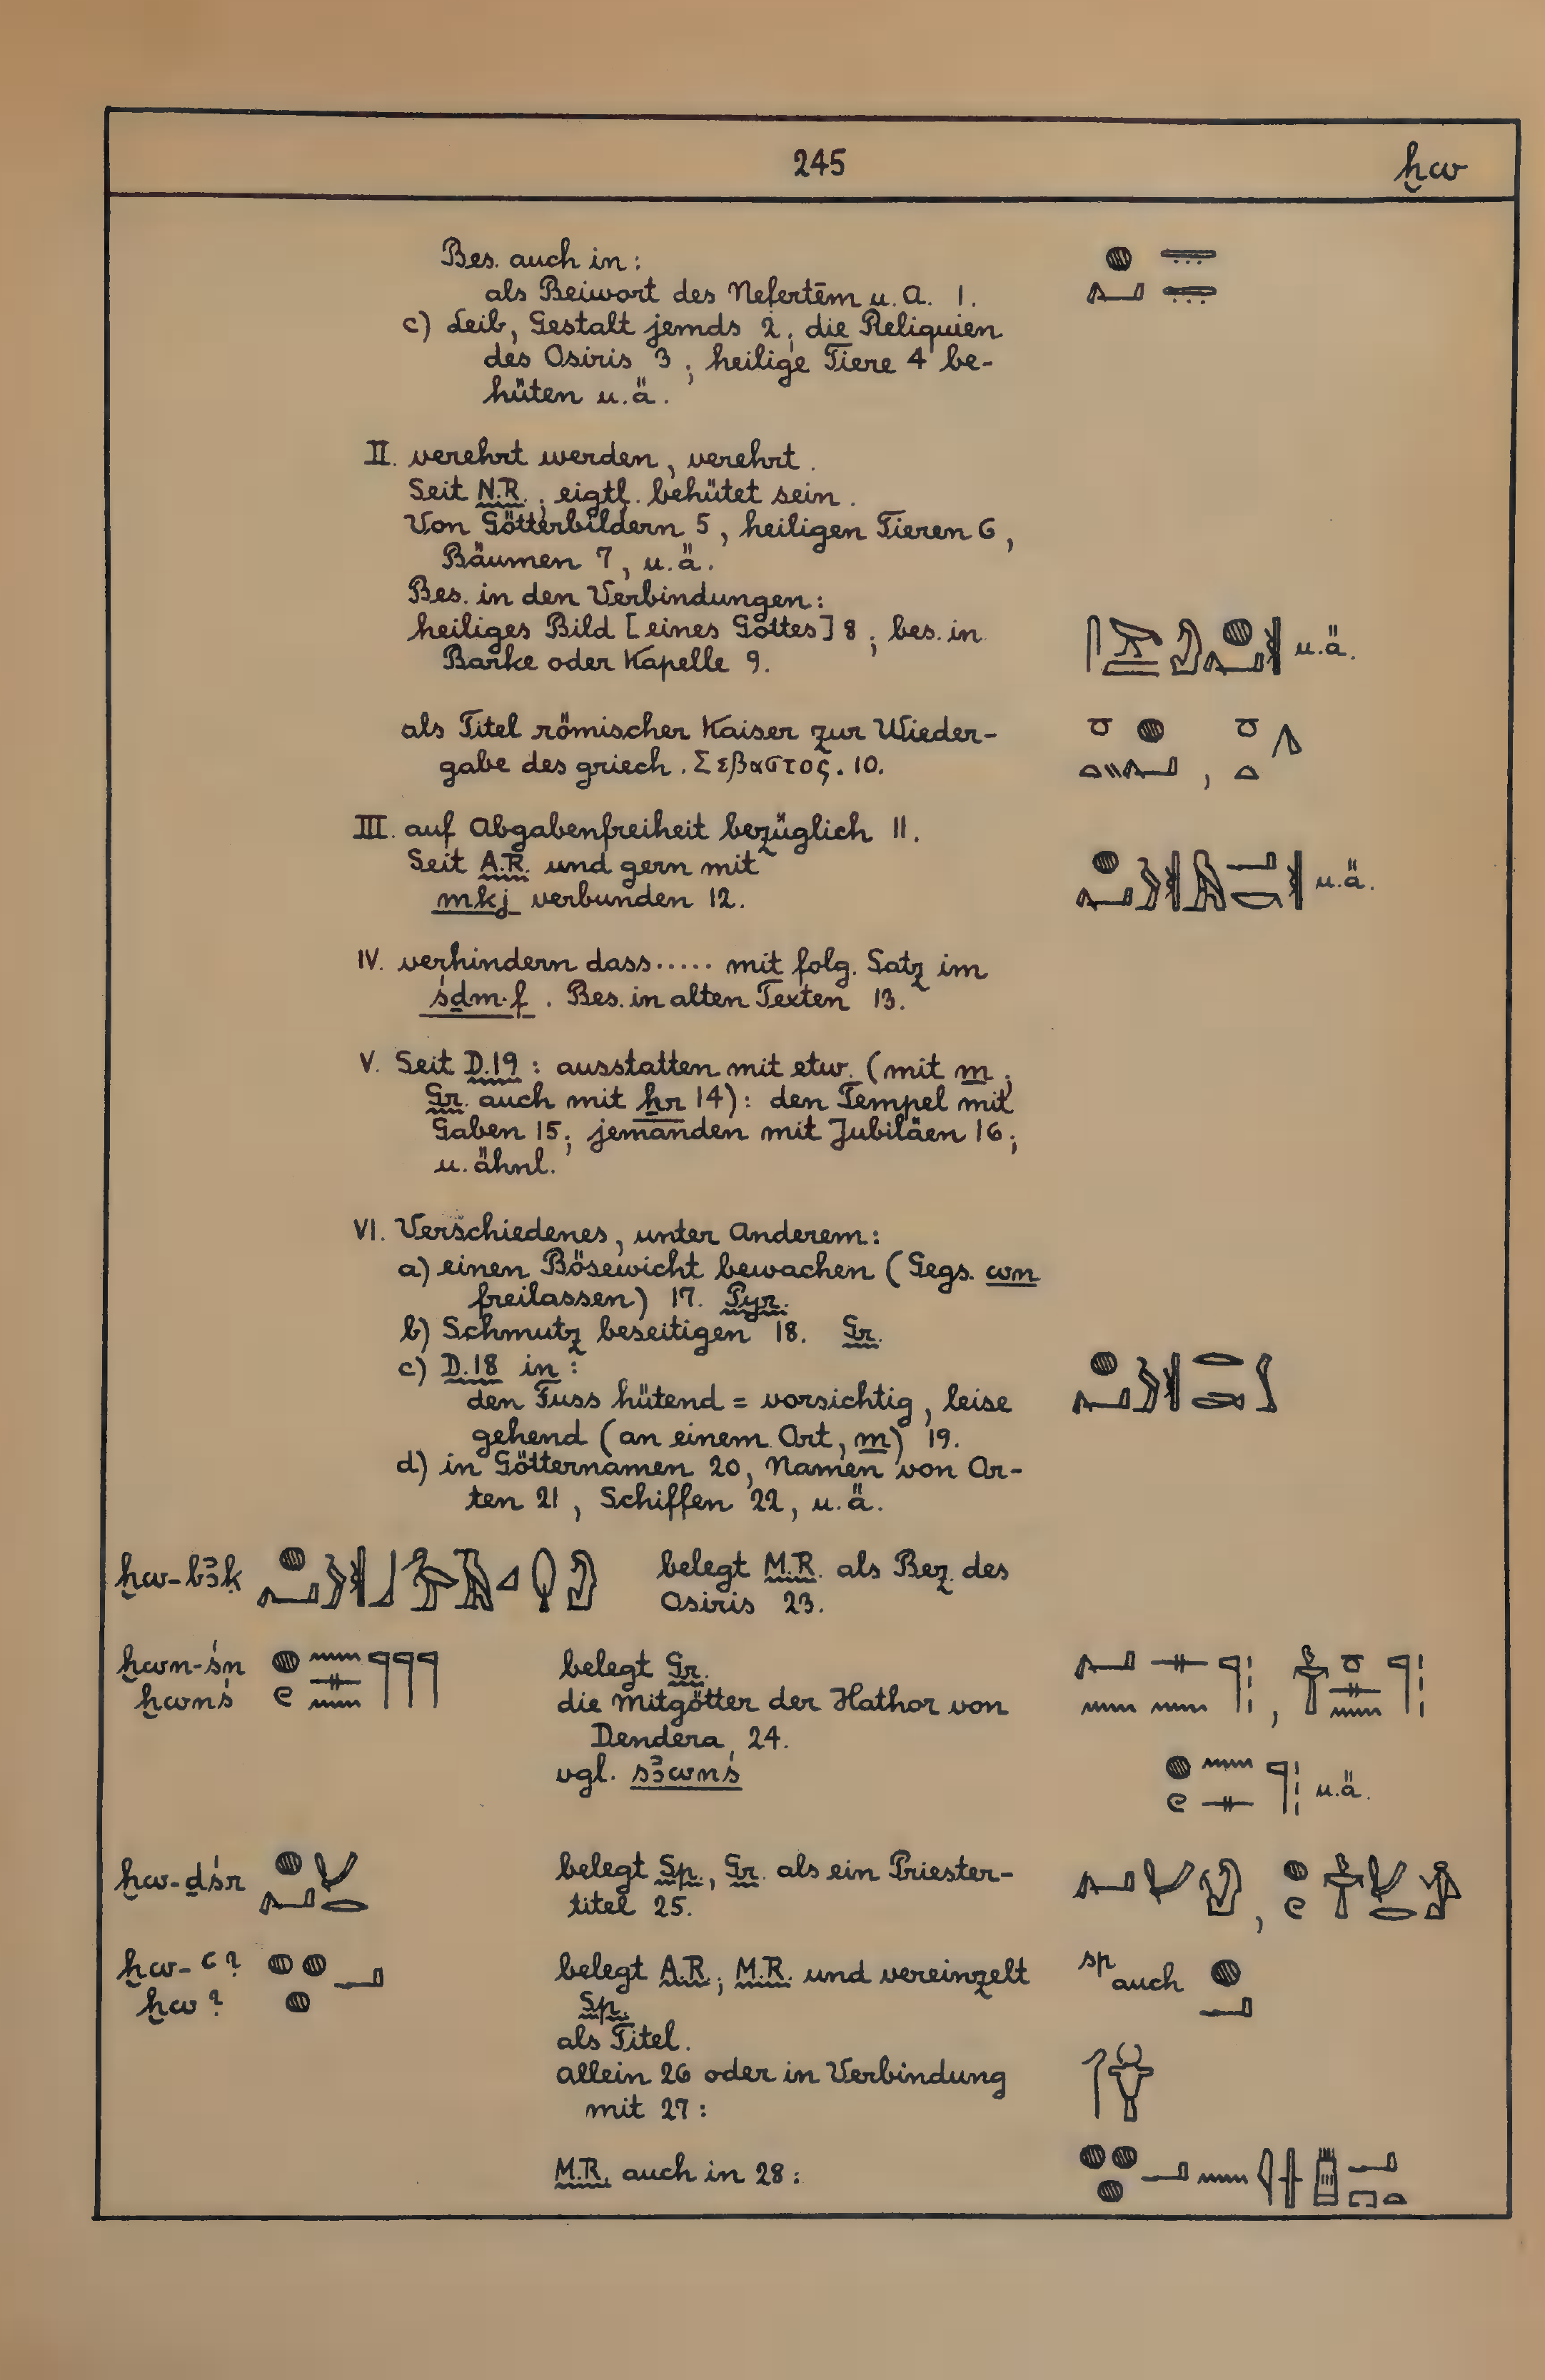 245 ḫw
Bes. auch in:
als Beiwort des Nefertēm u. A. 1.
c) Leib, Gestalt jemds 2; die Reliquien
des Osiris 3; heilige Tiere 4 be-
hüten u.ä.
II. verehrt werden, verehrt.
Seit N.R.; eigtl. behütet sein.
Von Götterbildern 5, heiligen Tieren 6,
Bäumen 7, u.ä.
Bes. in den Verbindungen:
heiliges Bild [eines Gottes] 8; bes. in u.ä.
Barke oder Kapelle 9.
als Titel römischer Kaiser zur Wieder-
gabe des griech. Σεβαστος. 10. ,
III. auf Abgabenfreiheit bezüglich 11.
Seit A.R. und gern mit u.ä.
mkj verbunden 12.
IV. verhindern dass..... mit folg. Satz im
śḏm.f. Bes. in alten Texten 13.
V. Seit D.19: ausstatten mit etw. (mit m;
Gr. auch mit ẖr 14): den Tempel mit
Gaben 15; jemanden mit Jubiläen 16;
u. ähnl.
VI. Verschiedenes, unter Anderem:
a) einen Bösewicht bewachen (Gegs. wn
freilassen) 17. Pyr.
b) Schmutz beseitigen 18. Gr.
c) D.18 in:
den Fuss hütend = vorsichtig, leise
gehend (an einem Ort, m) 19.
d) in Götternamen 20, Namen von Or-
ten 21, Schiffen 22, u.ä.
ḫw-bꜣḳ belegt M.R. als Bez. des
Osiris 23.
ḫwn-śn belegt Gr.
ḫwnś die Mitgötter der Hathor von ,
Dendera, 24.
vgl. sꜣwnś u.ä.
ḫw-ḏśr belegt Sp., Gr. als ein Priester-
titel 25. ,
ḫw-ꜥ? belegt A.R.; M.R. und vereinzelt sp auch
ḫw? Sp.
als Titel.
allein 26 oder in Verbindung
mit 27:
M.R. auch in 28: